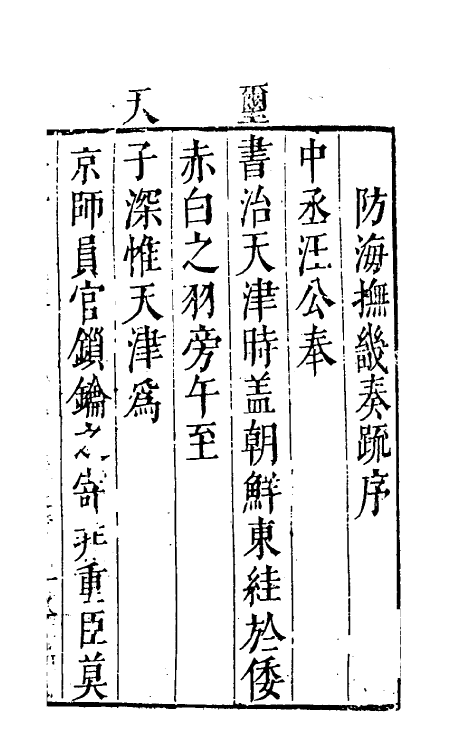 防海撫畿奏疏序
中丞汪公奉
璽書治天津時盖朝鮮東絓於倭
赤白之羽旁午至
天子深惟天津爲
京師員官鎖鑰之寄非重臣莫